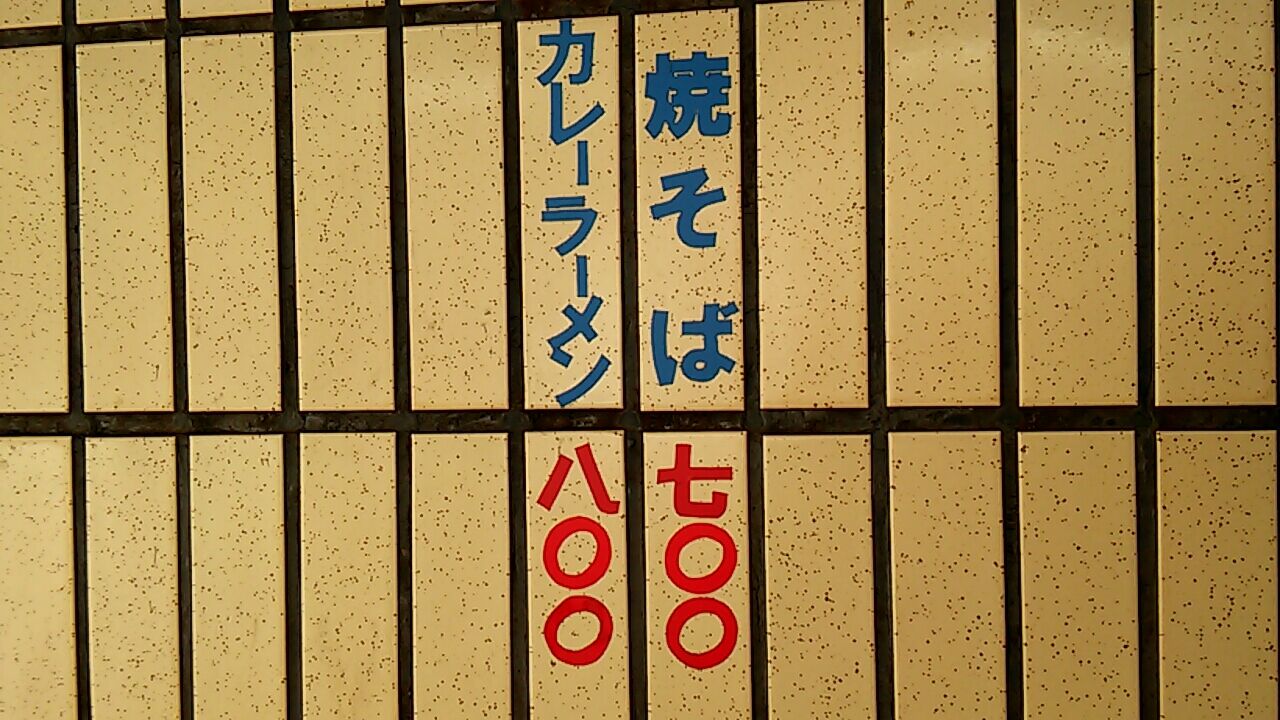 焼そば
七〇〇
カレーラーメン
八〇〇